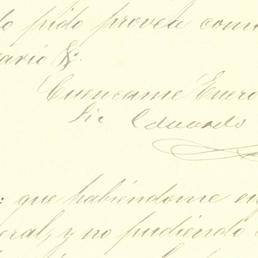 lo pido provea como
sario &.
Cuencame Enero
Lic Eduardo
: que habiéndome en
eral, y no pudiendo